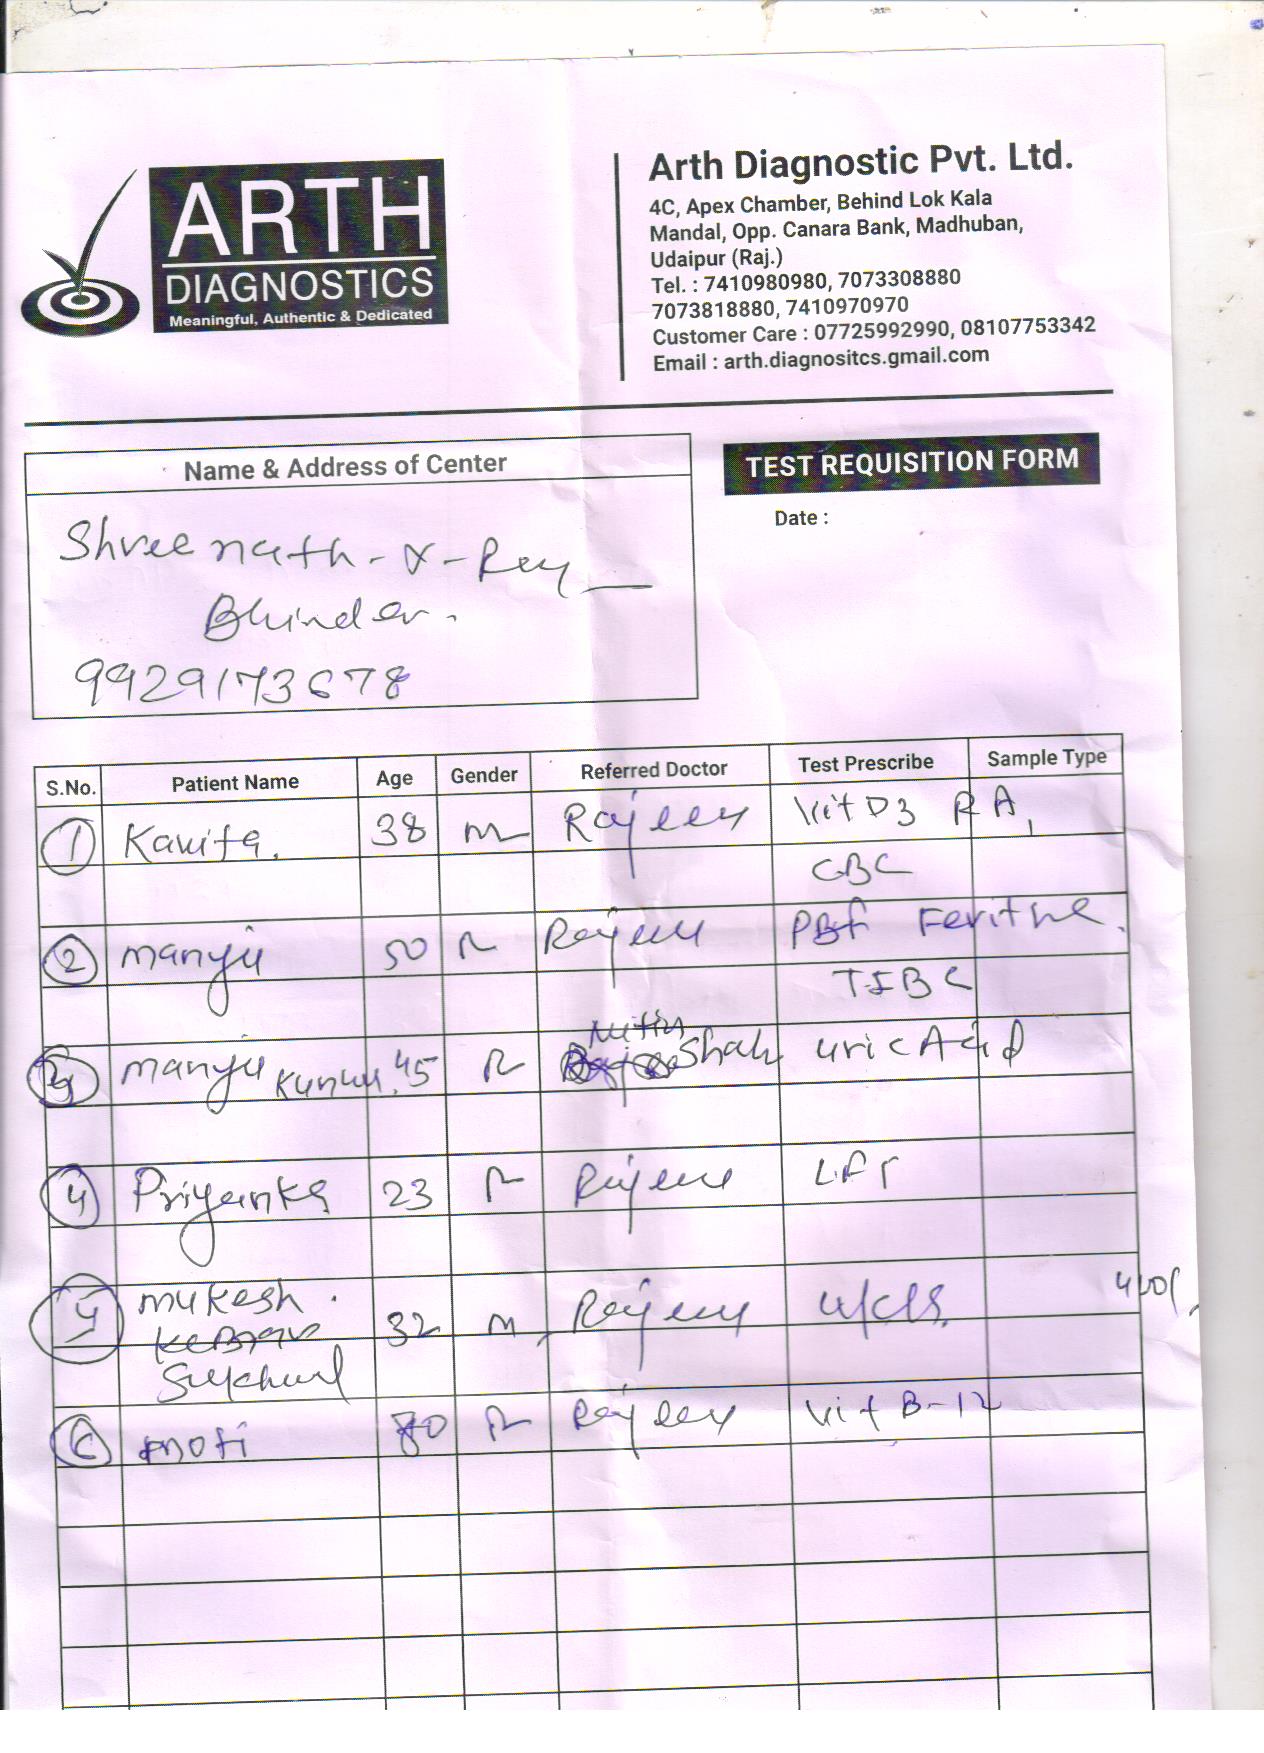 ARTH
DIAGNOSTICS
Meaningful, Authentic & Dedicated
Arth Diagnostic Pvt. Ltd.
4C, Apex Chamber, Behind Lok Kala
Mandal, Opp. Canara Bank, Madhuban,
Udaipur (Raj.)
Tel. : 7410980980, 7073308880
7073818880, 7410970970
Customer Care : 07725992990, 08107753342
Email : arth.diagnositcs.gmail.com
Name & Address of Center
TEST REQUISITION FORM
Date :
Shreenath-X-Ray
Bhinder.
9929173678
S.No. Patient Name Age Gender Referred Doctor Test Prescribe Sample Type
1 Kavita. 38 m Rajeev Vit D3 RA,
CBC
2 manju 50 F Rajeev PBF Feritine.
TIBC
manju 45 F Shah uric Acid
4 Priyanka 23 F Rajeev LFT
mukesh. 32 m Rajeev u/c/s. 400/,
moti 80 F Rajeev Vit B-12